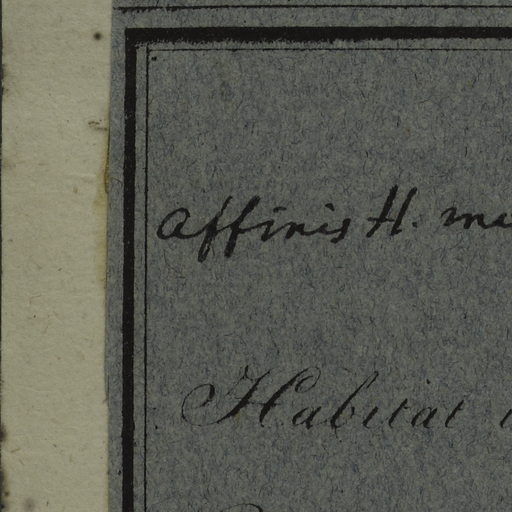 Affinis H.
Habitat